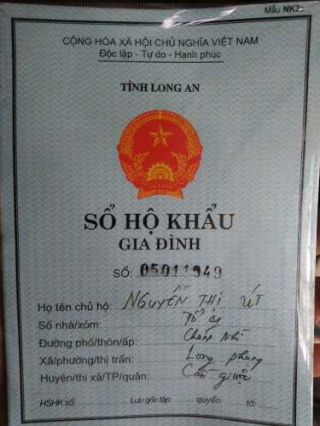 Mẫu NK3
CỘNG HÒA XÃ HỘI CHỦ NGHĨA VIỆT NAM
Độc lập - Tự do - Hạnh phúc
TỈNH LONG AN
SỔ HỘ KHẨU
GIA ĐÌNH
SỐ: 05011949
Họ tên chủ hộ: NGUYỄN THỊ ÚT
Số nhà/xóm: Tổ
Đường phố/thôn/ấp:
Xã/phường/thị trấn: Long phụng
Huyện/thị xã/TP/quận: Cần giuộc
HSHK số: Lưu góc tập quyển tờ: